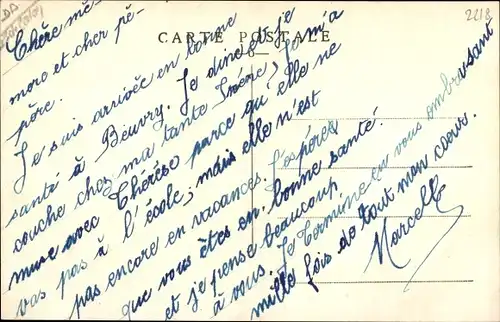 CARTE POSTALE
2218
Chère mé-
more et cher pé-
père.
Je suis arrivée en bonne
santé à Beuvry. Je dine et je
couche chez ma tante Irène; Je m'a
muse avec Thérèse parce qu'elle ne
vas pas à l'école; mais elle n'est
pas encore en vacances. J'espère
que vous êtes en bonne santé.
et je pense beaucoup
à vous. Je termine en vous embrassant
mille fois de tout mon coeur.
Marcelle